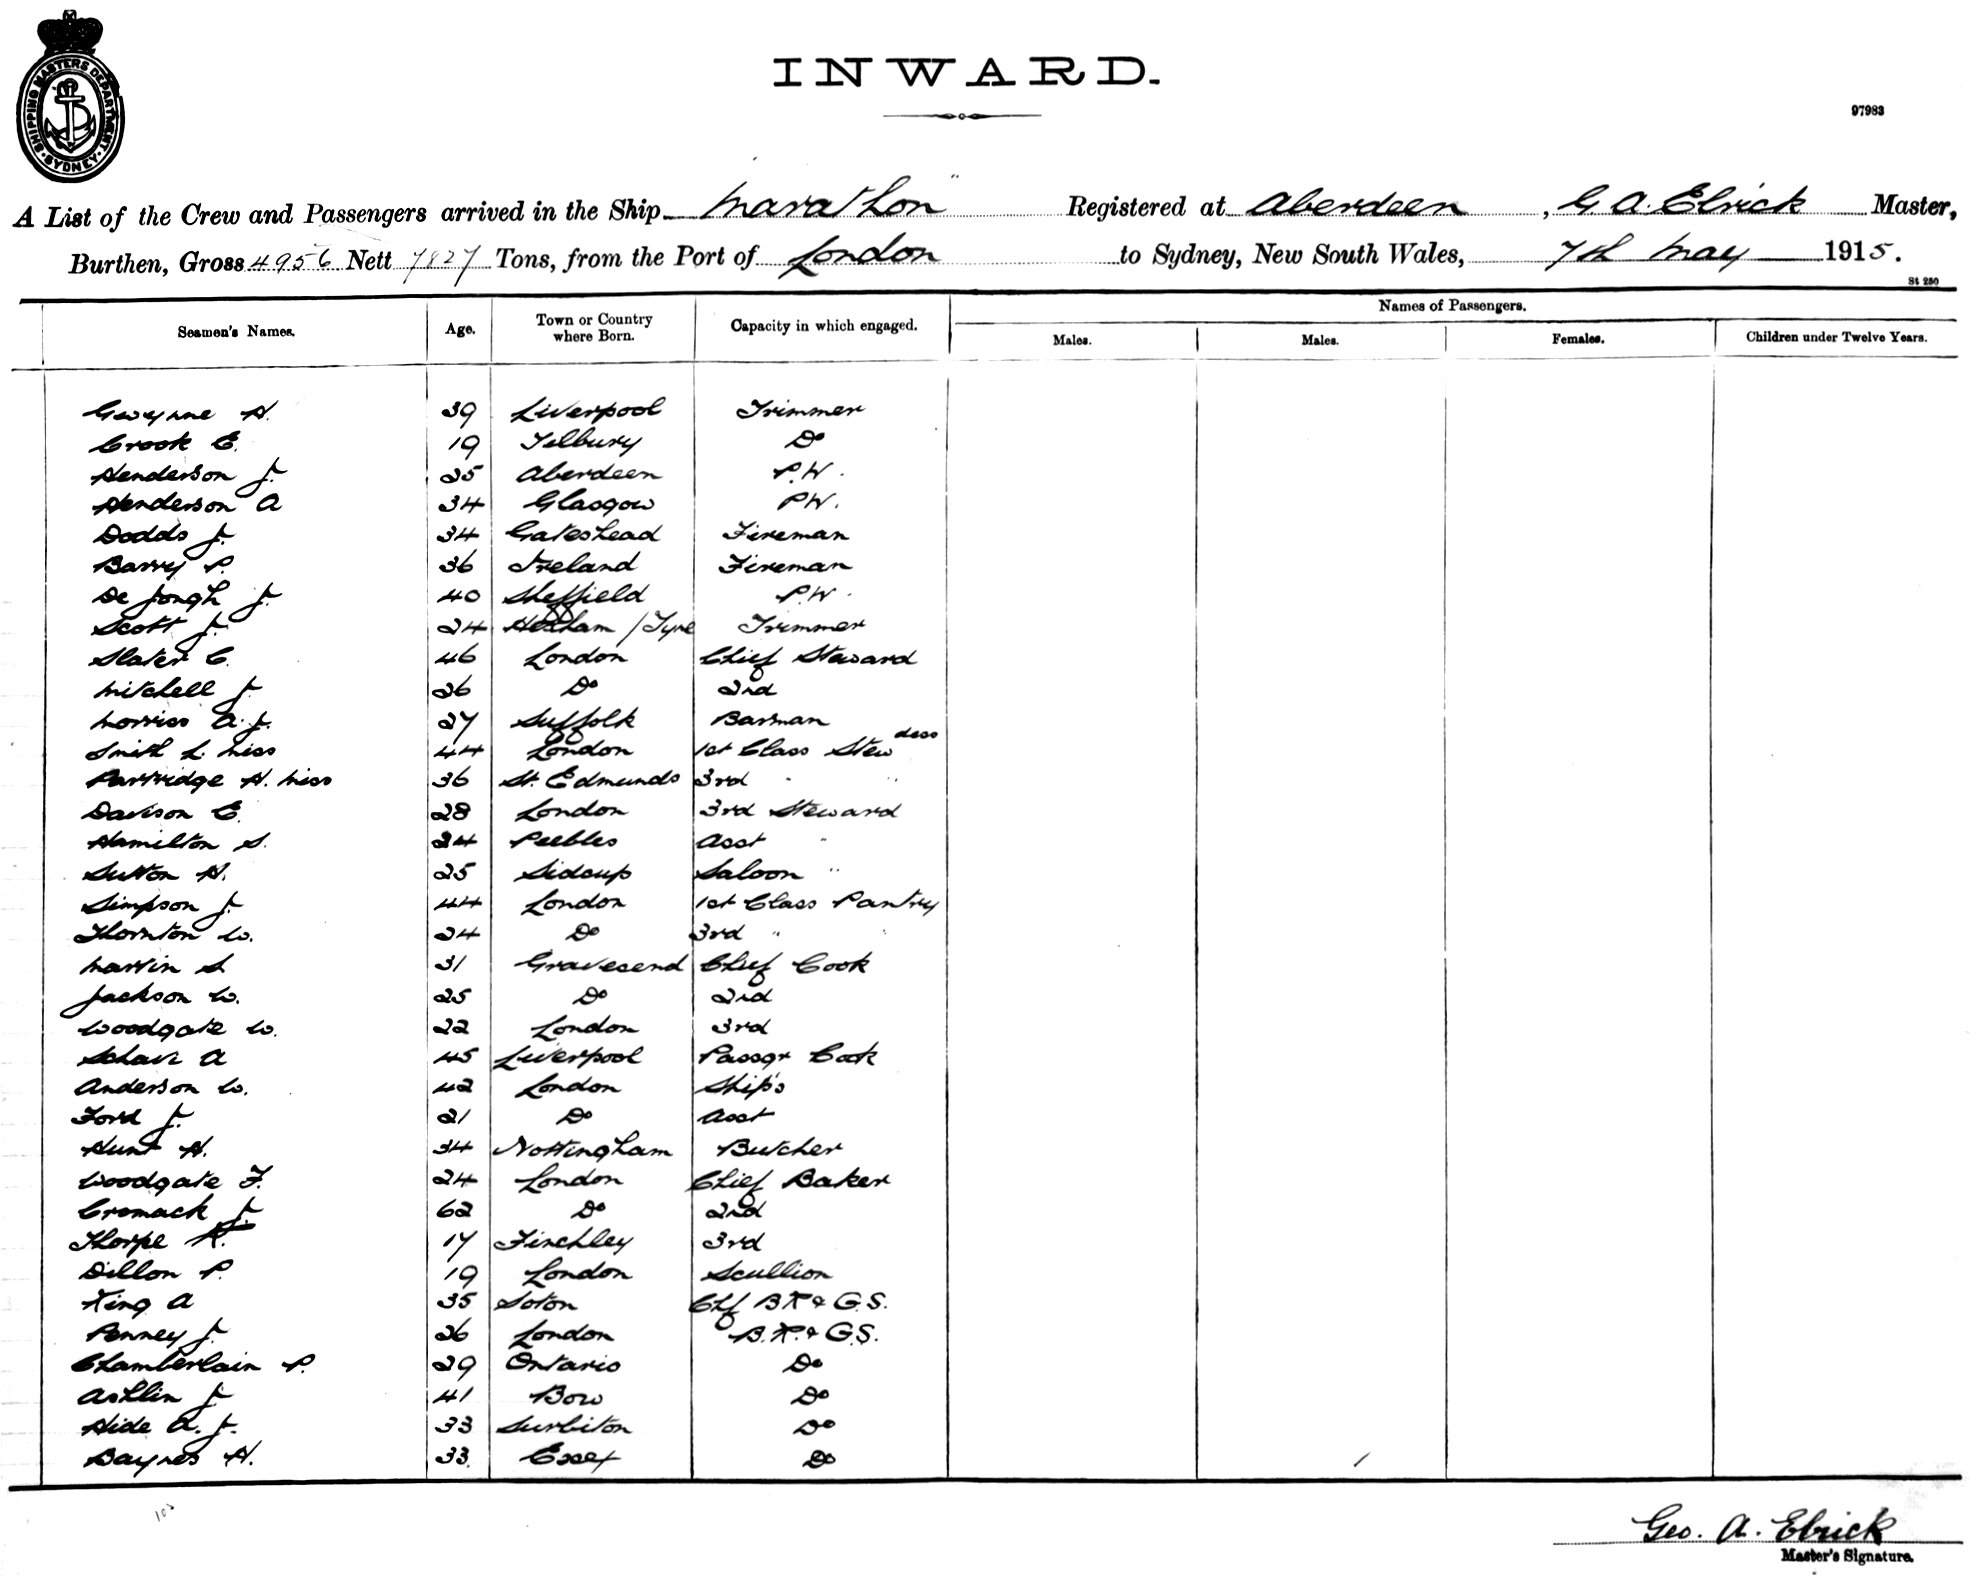 SHIPPING MASTERS DEPARTMENT · SYDNEY ·
INWARD.
97983
A List of the Crew and Passengers arrived in the Ship "Marathon" Registered at Aberdeen, G. A. Elrick Master,
Burthen, Gross 4956 Nett 7827 Tons, from the Port of London to Sydney, New South Wales, 7th May 1915.
St 250
Names of Passengers.
Seamen's Names. Age. Town or Country where Born. Capacity in which engaged. Males. Males. Females. Children under Twelve Years.
Gwynne H. 39 Liverpool Trimmer
Crook E. 19 Tilbury Do
Henderson J. 25 Aberdeen P.W.
Henderson A 34 Glasgow P.W.
Dodds J. 34 Gateshead Fireman
Barry P. 36 Ireland Fireman
De Jongh J. 40 Sheffield P.W.
Scott J. 24 Hexham / Tyne Trimmer
Slater C. 46 London Chief Steward
Mitchell J. 26 Do 2nd
Morriss A. J. 27 Suffolk Barman
Smith L. Miss 44 London 1st Class Stewdess
Partridge H. Miss 36 St. Edmunds 3rd " "
Davison E. 28 London 3rd Steward
Hamilton S. 24 Peebles Asst "
Sutton H. 25 Sidcup Saloon "
Simpson J. 44 London 1st Class Pantry
Thornton W. 24 Do 3rd " "
Martin S 31 Gravesend Chief Cook
Jackson W. 25 Do 2nd
Woodgate W. 22 London 3rd
A 45 Liverpool Passgr Cook
Anderson W. 42 London Ship's
Ford J. 21 Do Asst
Hunt H. 34 Nottingham Butcher
Woodgate F. 24 London Chief Baker
Cromack J. 62 Do 2nd
Thorpe 17 Finchley 3rd
Dillon P. 19 London Scullion
King A 35 Soton Chf B.R & G.S.
Penney J. 26 London B.R. & G.S.
Chamberlain P. 29 Ontario Do
Ashlin J 41 Bow Do
Hide A. J. 33 Surbiton Do
Baynes H. 33. Essex Do
103
Geo. A. Elrick
Master's Signature.